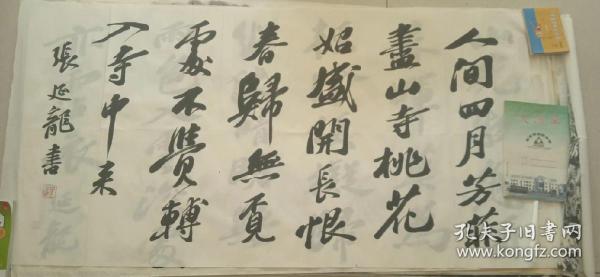 人间四月芳菲
盡山寺桃花
始盛開長恨
春歸無覓
處不覺轉
入寺中来
張延龍書
孔夫子旧书网
www.kongfz.com